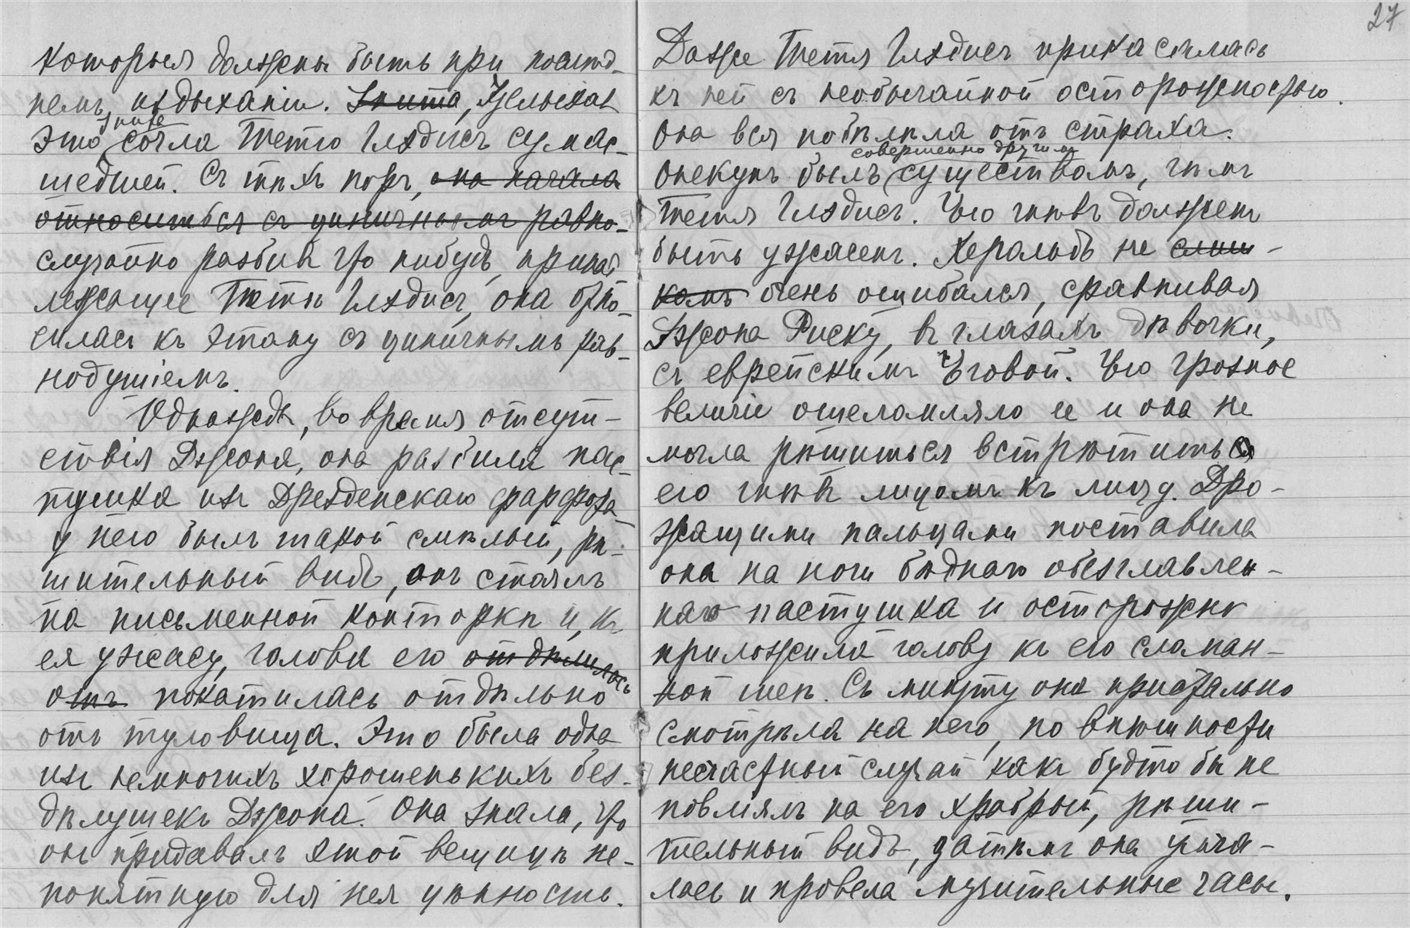 которыя должны быть при послѣд-
немъ издыханіи. Знита, Услыхавъ
это Энита сочла Тетю Глэдисъ сумас-
шедшей. Съ тѣхъ поръ, она начала
относиться съ циничнымъ равно-
случайно разбивъ что нибудь, принад
лежащее Тетѣ Глэдисъ, она отно-
силась къ этому съ циничнымъ рав-
нодушіемъ.
Однажды, во время отсут-
ствія Джона, она разбила пас-
тушка изъ Дрезденскаго фарфора
у него былъ такой смѣлый, рѣ-
шительный видъ, онъ стоялъ
на письменной конторкѣ и, къ
ея ужасу, голова его отдѣлилась
отъ покатилась отдѣльно
отъ туловища. Это была одна
изъ немногихъ хорошенькихъ без-
дѣлушекъ Джона. Она знала, что
онъ придавалъ этой вещицѣ не-
понятную для нея цѣнность.
27
Даже Тетя Глэдисъ прикасалась
къ ней съ необычайной осторожностью.
Она вся побѣлѣла отъ страха.
Опекунъ былъ совершенно другимъ существомъ, чѣмъ
Тетя Глэдисъ. Его гнѣвъ долженъ
быть ужасенъ. Херальдъ не слиш-
комъ очень ошибался, сравнивая
Джона Риску, въ глазахъ дѣвочки,
съ еврейскимъ Іеговой. Его грозное
величіе ошеломляло ее и она не
могла рѣшиться встрѣтиться
его гнѣвъ лицомъ къ лицу. Дро-
жащими пальцами поставила
она на ноги бѣднаго обезглавлен-
наго пастушка и осторожно
приложила голову къ его сломан-
ной шеѣ. Съ минуту она пристально
смотрѣла на него, по внѣшности
несчастный случай какъ будто бы не
повліялъ на его храбрый, рѣши-
тельный видъ, затѣмъ она умча-
лась и провела мучительные часы.